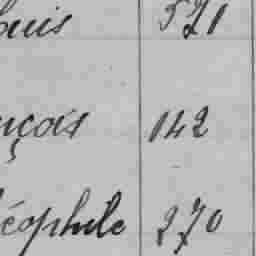 ouis 571
nçois 142
éophile 270